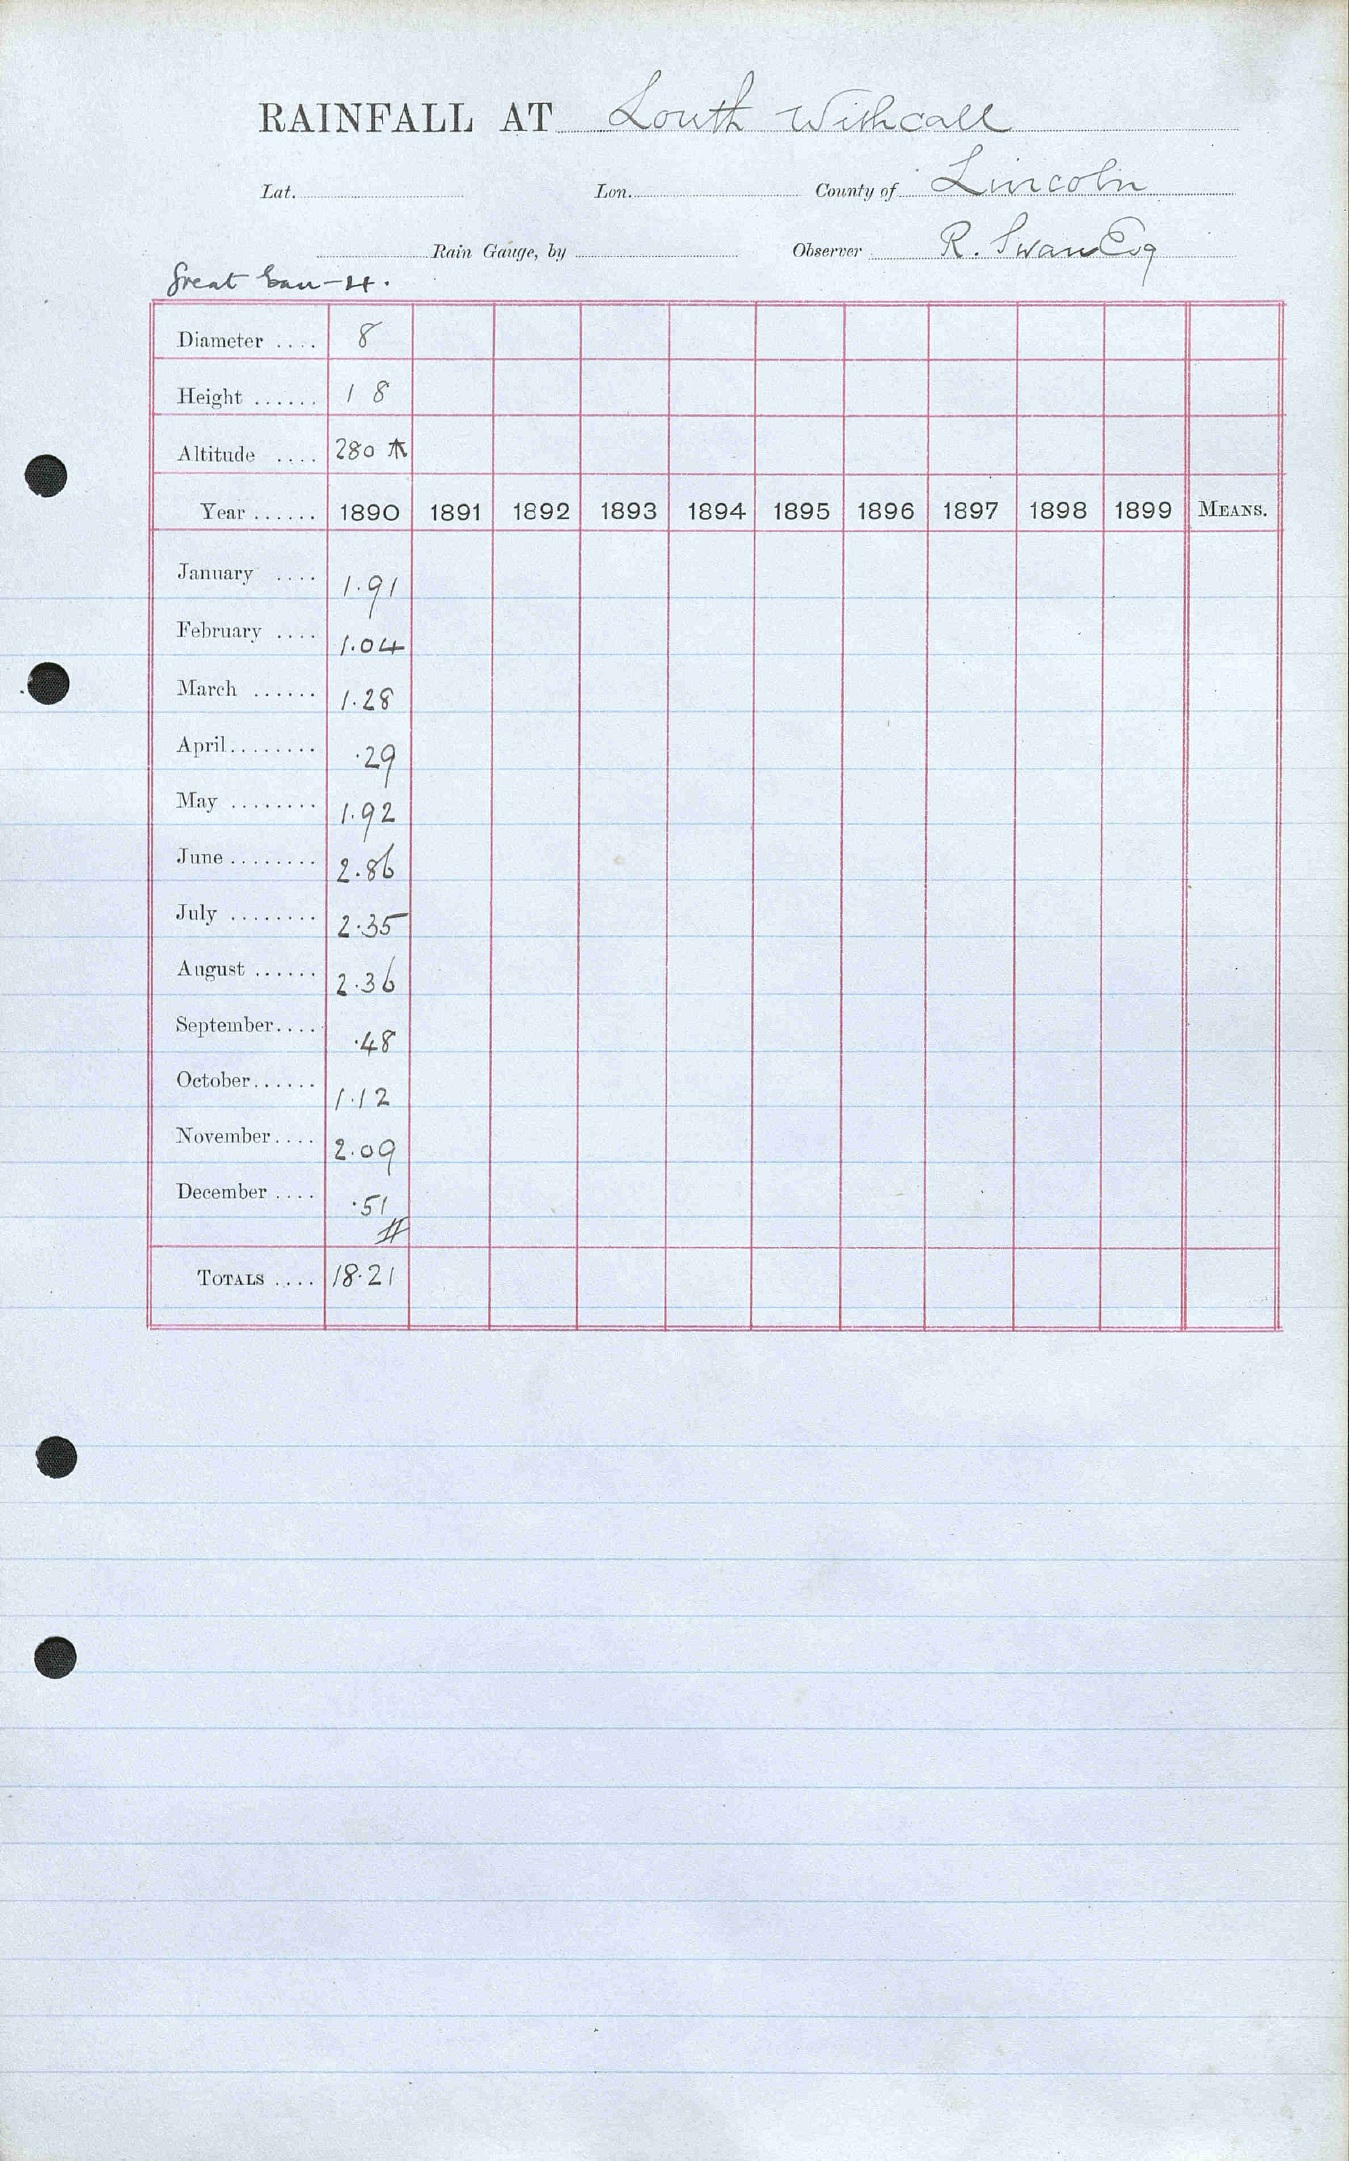 RAINFALL AT Louth Withcall
Lat. Lon. County of Lincoln
Rain Gauge, by Observer R. Swan Esq
Great Eau-4.
Diameter .... 8
Height ...... 1 8
Altitude .... 280
Year ...... 1890 1891 1892 1893 1894 1895 1896 1897 1898 1899 MEANS.
January .... 1.91
February .... 1.04
March ...... 1.28
April ........ .29
May ........ 1.92
June ........ 2.86
July ........ 2.35
August ...... 2.36
September .... .48
October ...... 1.12
November .... 2.09
December .... .51
TOTALS .... 18.21